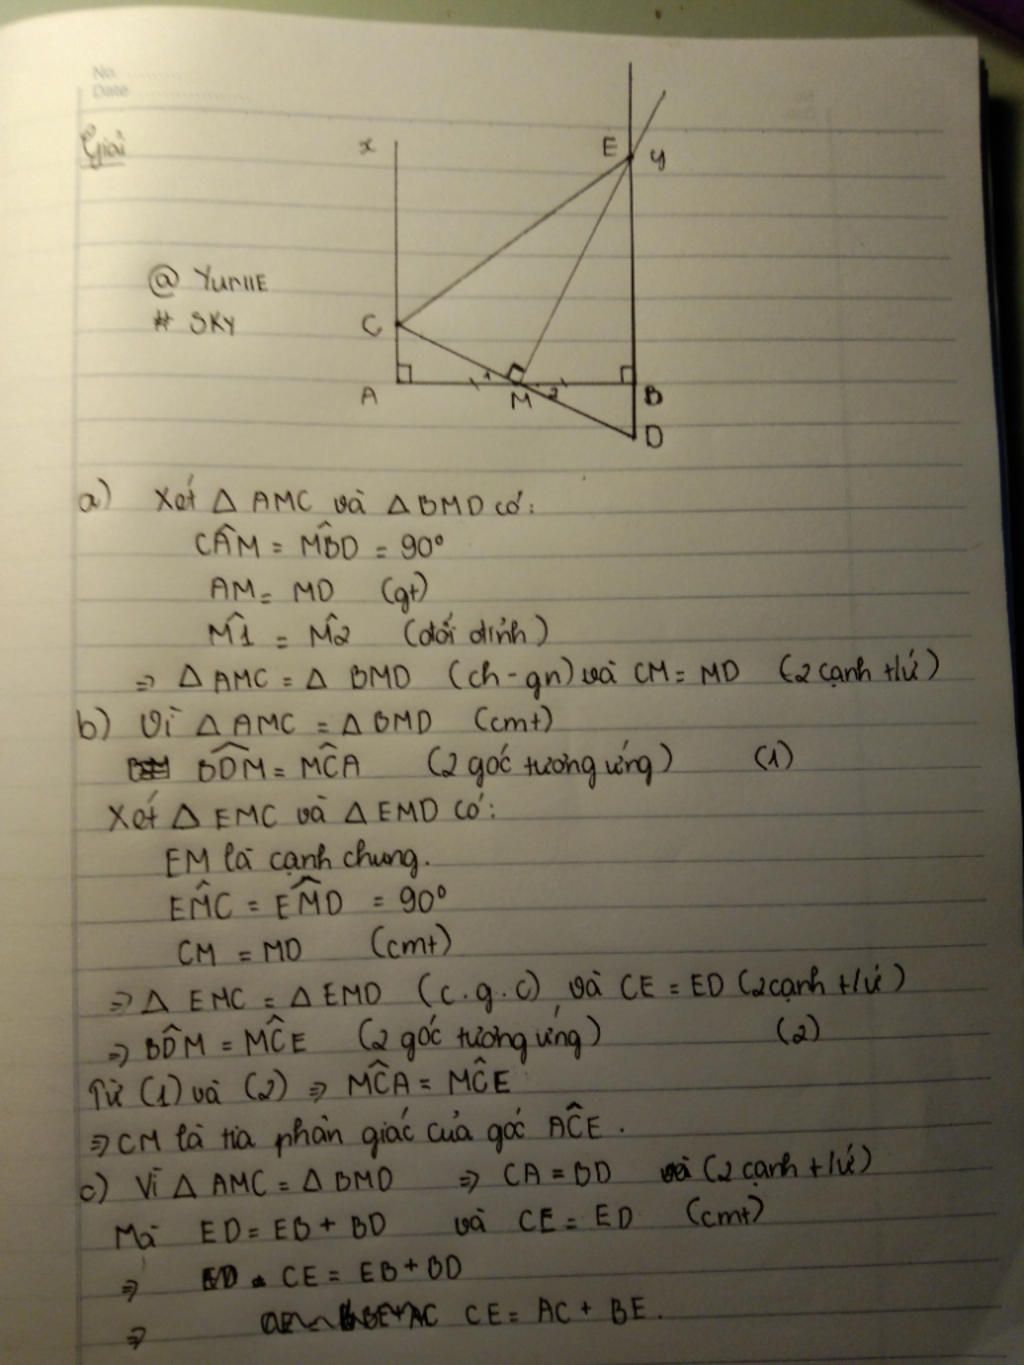 No.
Date
Giải
x
E
y
@ YuriiE
# SKY
C
1
A
M
2
B
D
a) Xét △ AMC và △ BMD có:
CÂM = MB̂D = 90°
AM = MD (gt)
M̂1 = M̂2 (đối đỉnh)
=> △ AMC = △ BMD (ch-gn) và CM = MD (2 cạnh t/ứ)
b) Vì △ AMC = △ BMD (cmt)
BD̂M = MĈA (2 góc tương ứng) (1)
Xét △ EMC và △ EMD có:
EM là cạnh chung.
EM̂C = EM̂D = 90°
CM = MD (cmt)
=> △ EMC = △ EMD (c.g.c) và CE = ED (2 cạnh t/ứ)
=> BD̂M = MĈE (2 góc tương ứng) (2)
Từ (1) và (2) => MĈA = MĈE
=> CM là tia phân giác của góc AĈE.
c) Vì △ AMC = △ BMD => CA = BD (2 cạnh t/ứ)
Mà ED = EB + BD và CE = ED (cmt)
=> CE = EB + BD
=> CE = AC + BE.